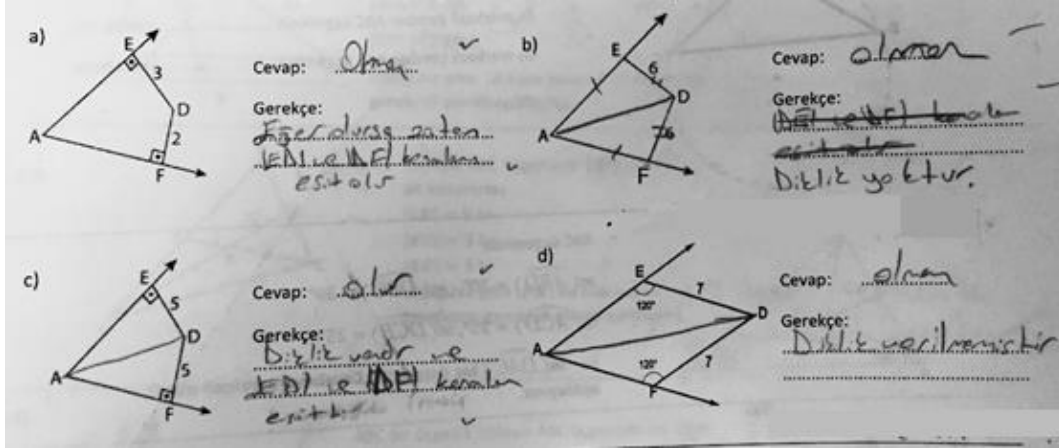 a)
E
3
D
2
A
F
Cevap: Olmaz
Gerekçe:
Eğer olursa zaten
|ED| ve |DF| kenarları
eşit olur
b)
E
6
D
6
A
F
Cevap: olmaz
Gerekçe:
|DE| ve |DF|
Diklik yoktur.
c)
E
5
D
5
A
F
Cevap: olur
Gerekçe:
Diklik vardır ve
|ED| ve |DF| kenarları
eşittir
d)
E
120°
7
D
A
120°
7
F
Cevap: olmaz
Gerekçe:
Diklik verilmemiştir